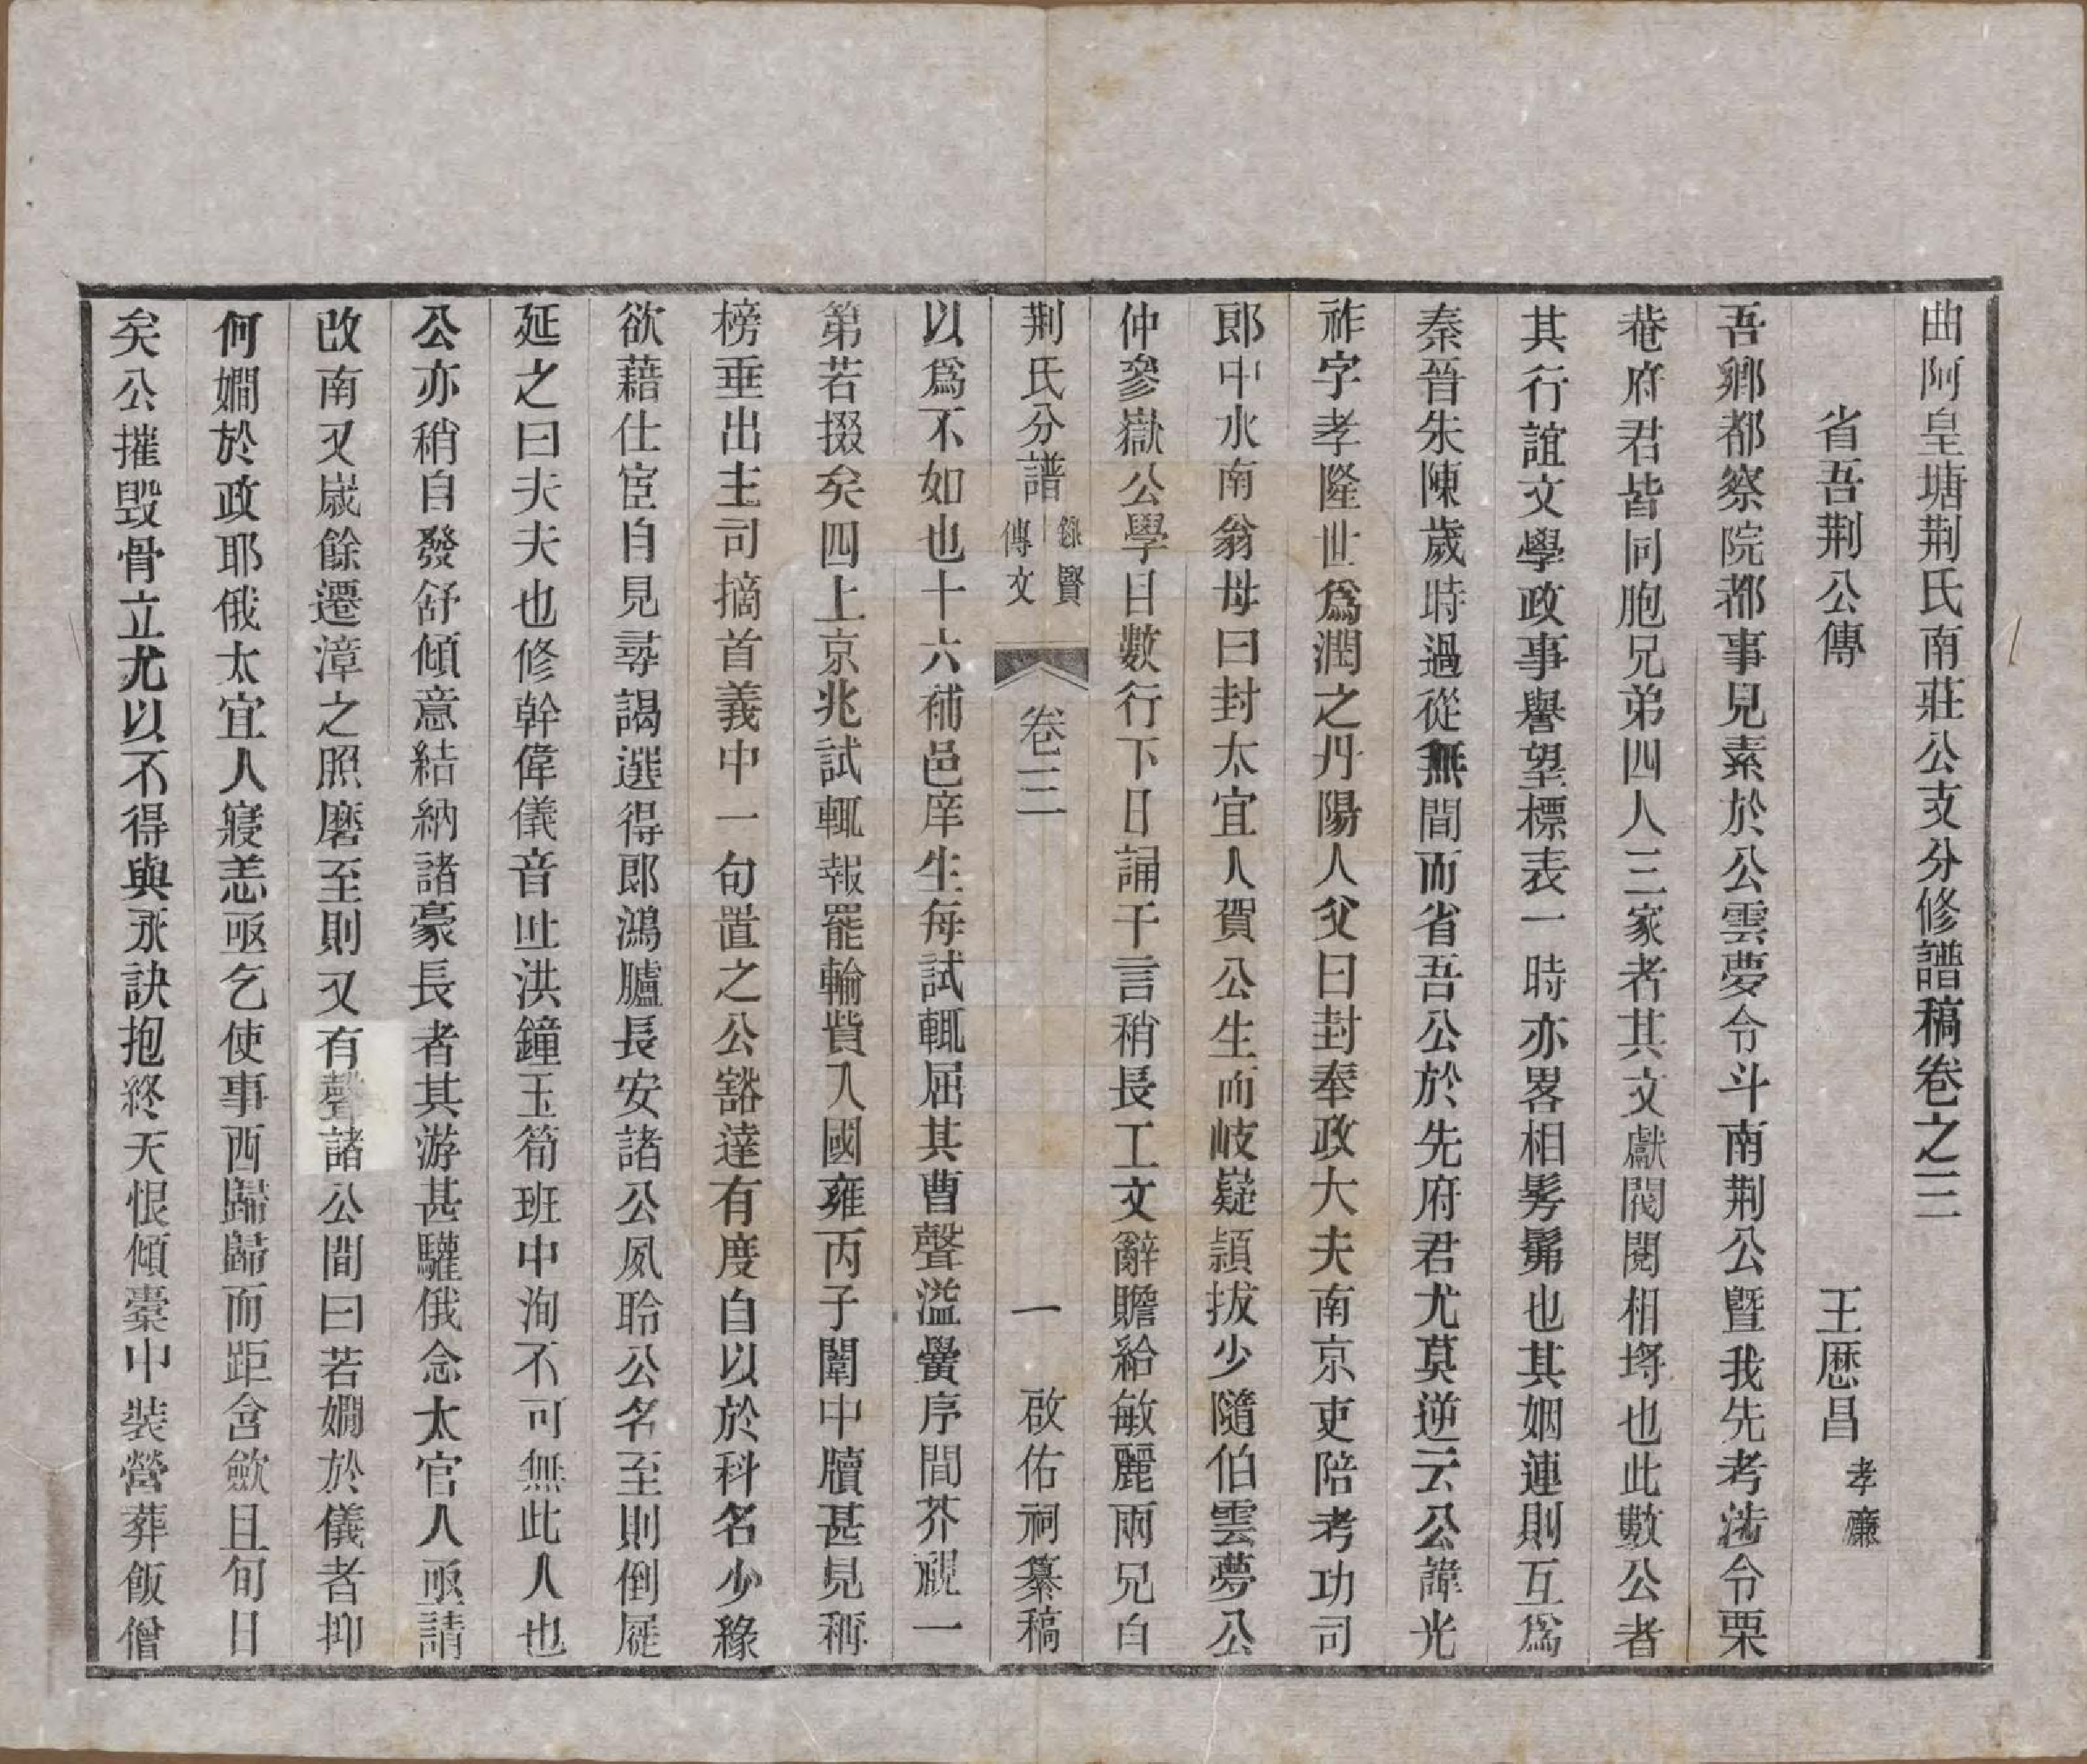 曲阿皇塘荆氏南莊公支分修譜稿卷之三
省吾荆公傳　王厯昌孝廉
吾鄉都察院都事見素於公雲夢令斗南荆公曁我先考涉令栗
菴府君皆同胞兄弟四人三家者其文獻閥閱相埒也此數公者
其行誼文學政事譽望標表一時亦畧相髣髴也其姻連則互爲
秦晉朱陳歲時過從無間而省吾公於先府君尤莫逆云公諱光
祚字孝隆世爲潤之丹陽人父曰封奉政大夫南京吏陪考功司
郎中水南翁母曰封太宜人賀公生而岐嶷頴拔少隨伯雲夢公
仲參嶽公學目數行下日誦千言稍長工文辭贍給敏麗兩兄自
荆氏分譜　錄賢傳文　卷三　一　啟佑祠纂稿
以爲不如也十六補邑庠生每試輒屈其曹聲溢黌序間芥視一
第若掇矣四上京兆試輒報罷輸貲入國雍丙子闈中牘甚見稱
榜垂出主司摘首義中一句置之公豁達有度自以於科名少緣
欲藉仕宦自見尋謁選得郎鴻臚長安諸公夙聆公名至則倒屣
延之曰夫夫也修幹偉儀音吐洪鐘玉筍班中洵不可無此人也
公亦稍自發舒傾意結納諸豪長者其游甚驩俄念太官人亟請
改南又嵗餘遷漳之照磨至則又有聲諸公間曰若嫺於儀者抑
何嫺於政耶俄太宜人寢恙亟乞使事西歸歸而距含歛且旬日
矣公摧毀骨立尤以不得與永訣抱終天恨傾橐中裝營葬飯僧